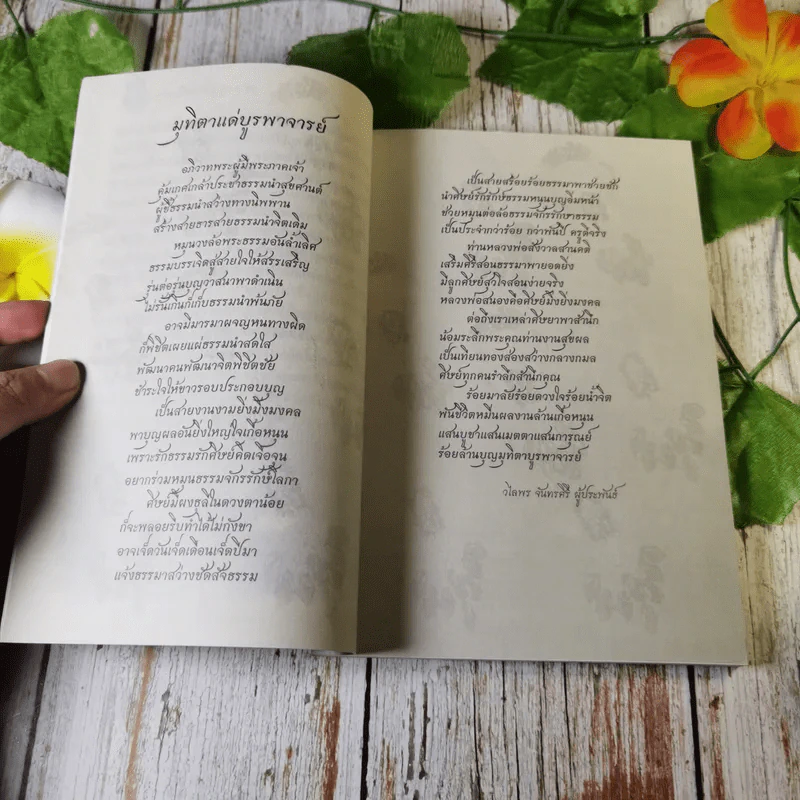 มุทิตาแด่บูรพาจารย์
อภิวาทพระผู้มีพระภาคเจ้า
คุ้มเกศเกล้าประชาธรรมนำสุขศานต์
ผู้ชี้ธรรมนำสว่างทางนิพพาน
สร้างสายธารสายธรรมนำจิตเดิม
หมุนวงล้อพระธรรมอันล้ำเลิศ
ธรรมบรรเจิดสู่สายใจให้สรรเสริญ
รุ่นต่อรุ่นบุญวาสนาพาดำเนิน
ไม่รั้นเกินก็เก็บธรรมนำพ้นภัย
อาจมีมารมาผจญหนทางผิด
ก็พิชิตเผยแผ่ธรรมนำสดใส
พัฒนาคนพัฒนาจิตพิชิตชัย
ชำระใจให้ขาวรอบประกอบบุญ
เป็นสายงานงามยิ่งมิ่งมงคล
พาบุญผลอันยิ่งใหญ่ใจเกื้อหนุน
เพราะรักธรรมรักศิษย์คิดเจือจุน
อยากร่วมหมุนธรรมจักรรักษ์โลกา
ศิษย์มีผงธุลีในดวงตาน้อย
ก็จะพลอยรีบทำได้ไม่กังขา
อาจเจ็ดวันเจ็ดเดือนเจ็ดปีมา
แจ้งธรรมาสว่างชัดสัจธรรม
เป็นสายสร้อยร้อยธรรมาพาช่วยชัก
นำศิษย์รักรักษ์ธรรมหนุนบุญอิ่มหน้า
ช่วยหมุนต่อล้อธรรมจักรรักษาธรรม
เป็นประจำกว่าร้อย กว่าพันปี ครูดีจริง
ท่านหลวงพ่อสังวาลสานคติ
เสริมศิริสอนธรรมาพายอดยิ่ง
มีลูกศิษย์สุใจสอนง่ายจริง
หลวงพ่อสนองคือศิษย์มิ่งยิ่งมงคล
ต่อถึงเราเหล่าศิษยาพาสำนึก
น้อมระลึกพระคุณท่านงานสุขผล
เป็นเทียนทองส่องสว่างกลางกมล
ศิษย์ทุกคนรำลึกสำนึกคุณ
ร้อยมาลัยร้อยดวงใจร้อยน้ำจิต
พันชีวิตหมื่นผลงานล้านเกื้อหนุน
แสนบูชาแสนเมตตาแสนการุณย์
ร้อยล้านบุญมุทิตาบูรพาจารย์
วิไลพร จันทรศิริ ผู้ประพันธ์